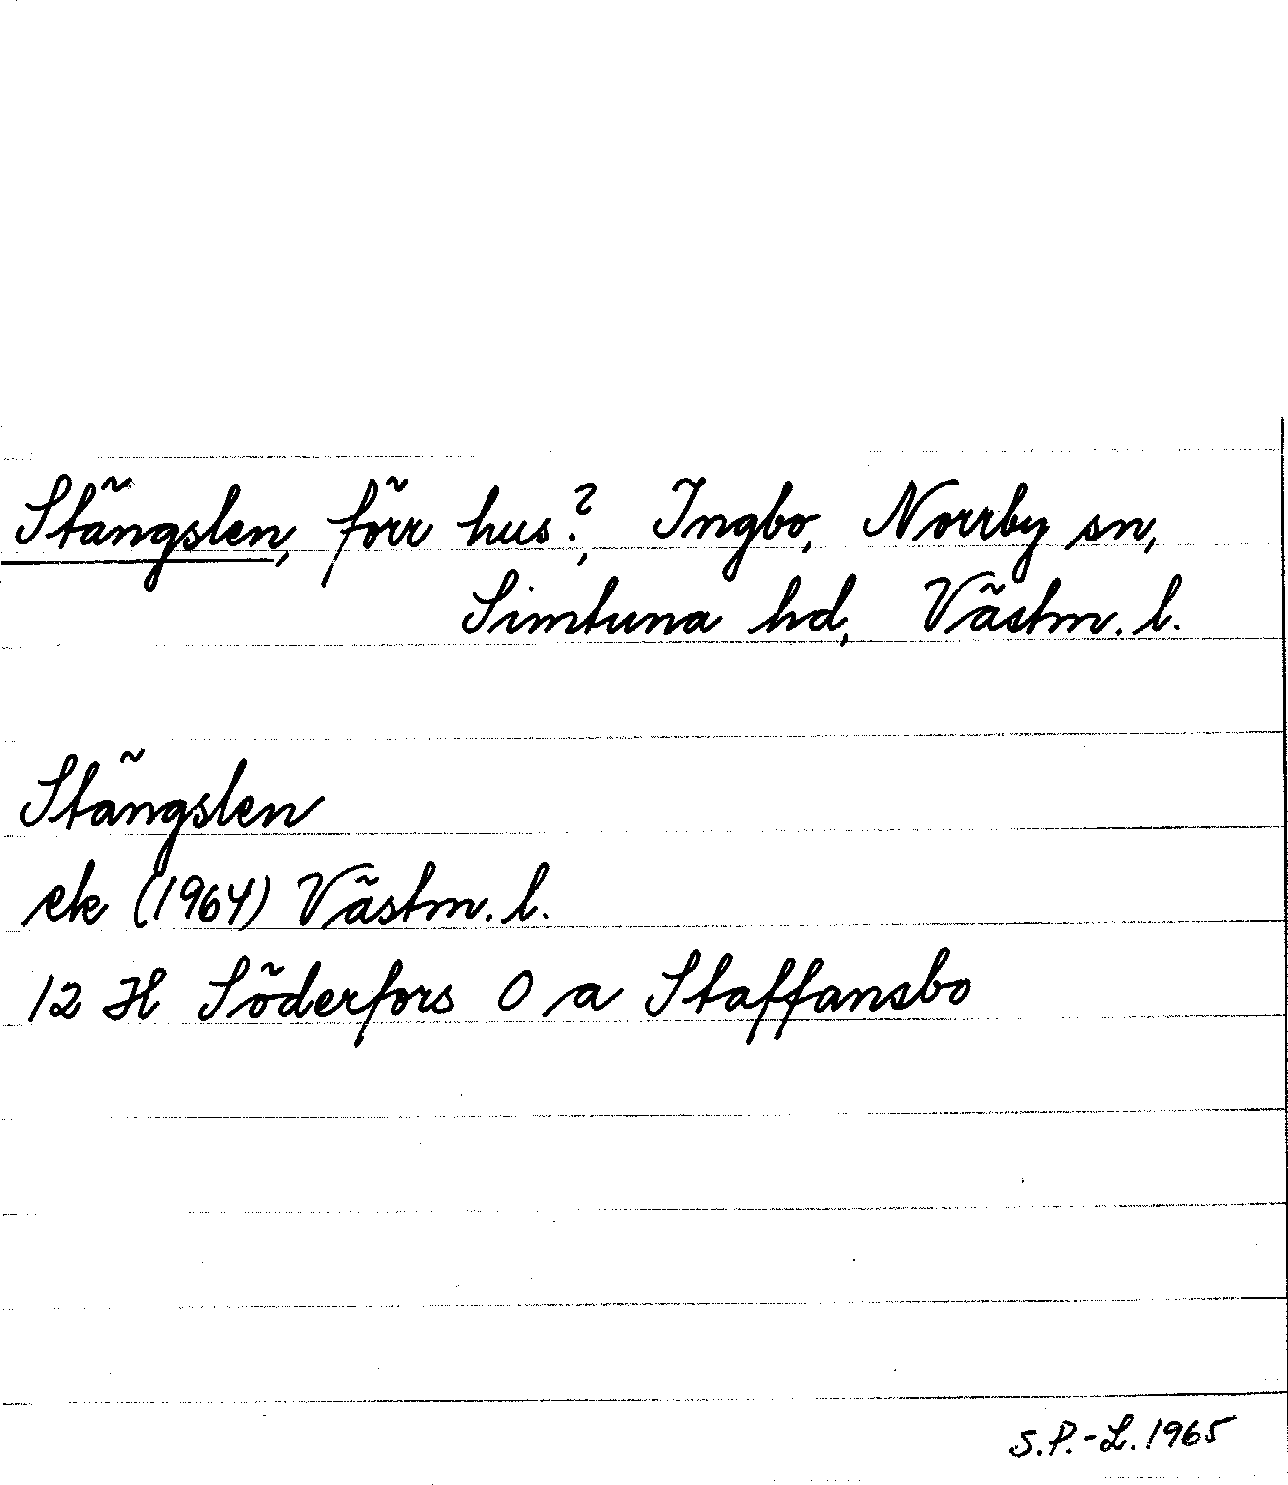 Stängslen, förr hus?, Ingbo, Norrby sn,
Simtuna hd, Västm. l.
Stängslen
ek (1964) Västm. l.
12 H Söderfors 0 a Staffansbo
S.P.-L. 1965